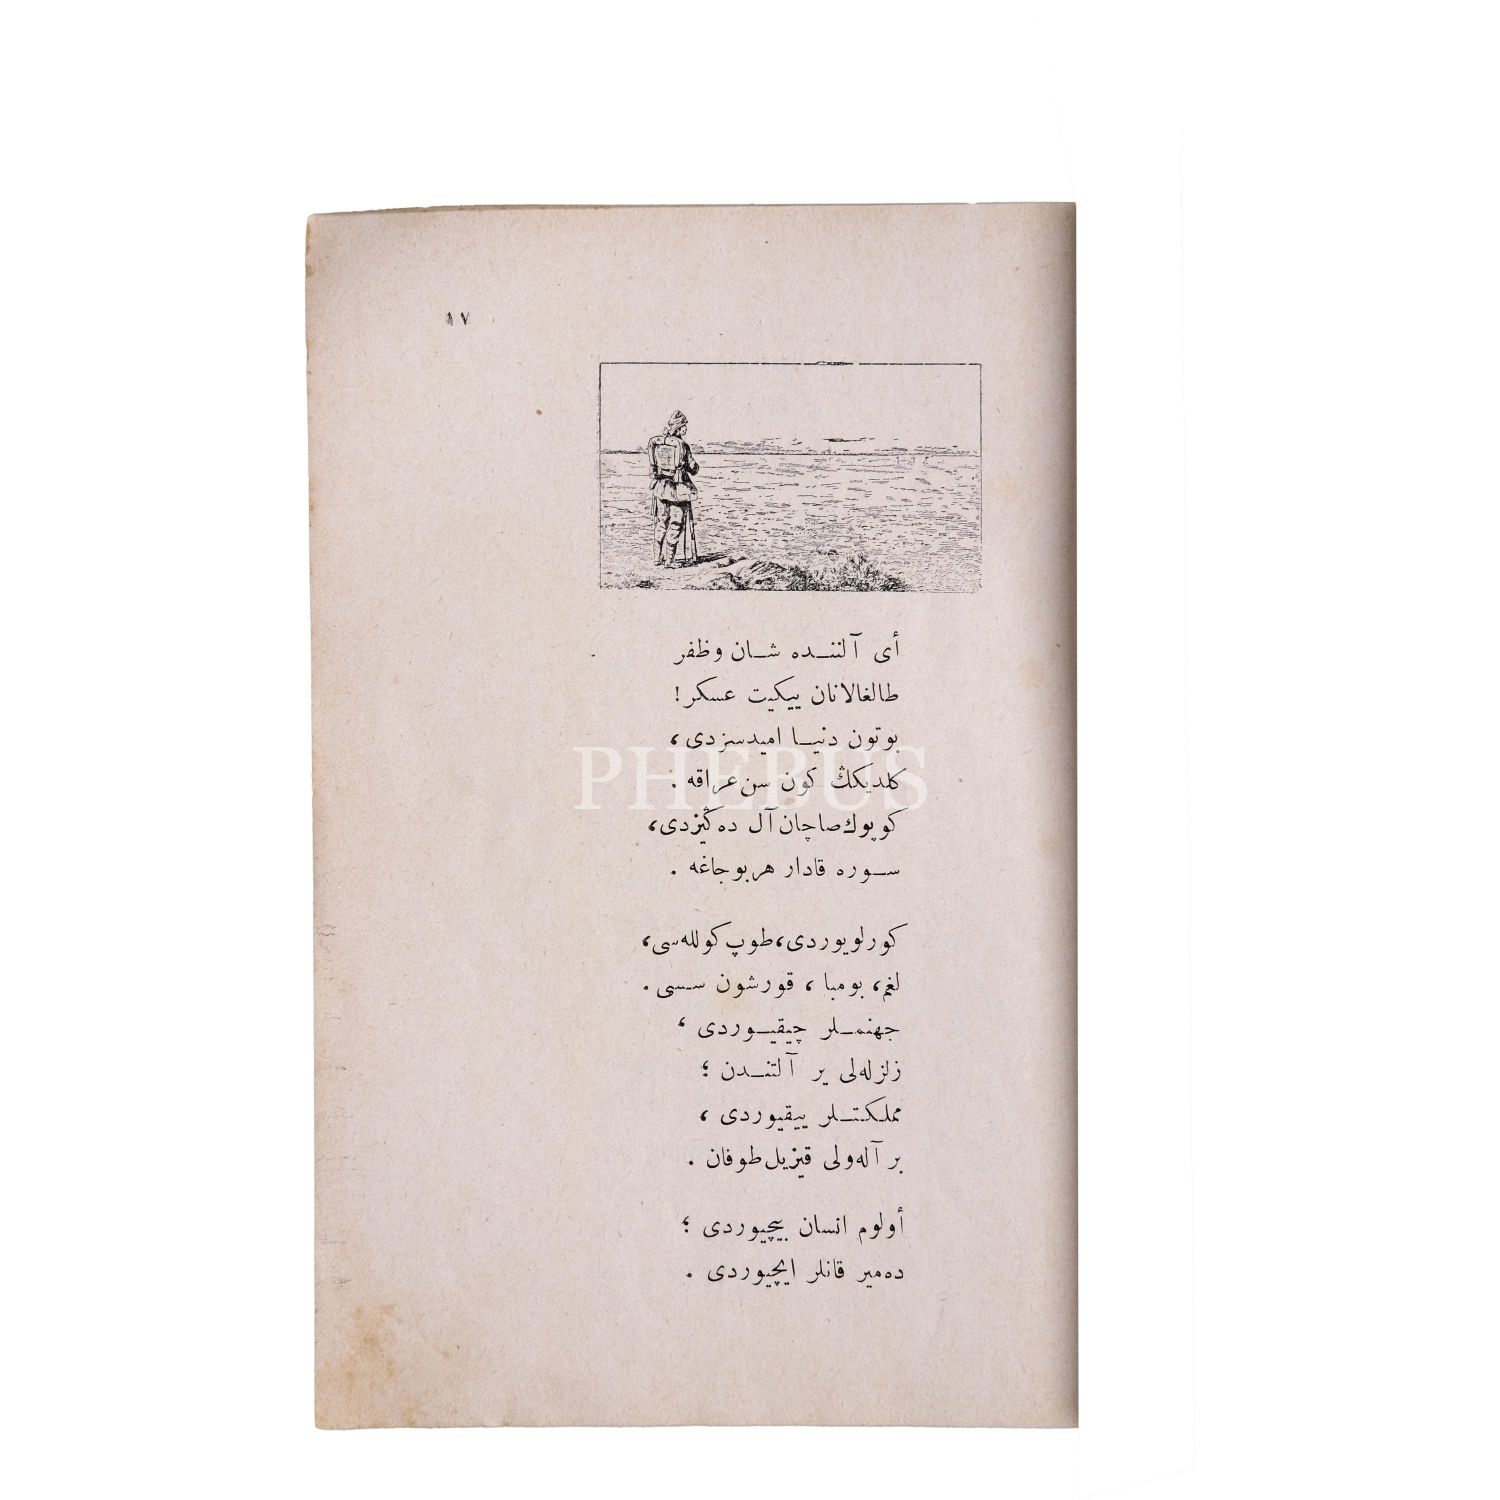 ١٧
أی آلننده شان وظفر
طالغالانان ییکیت عسکر!
بوتون دنیا امیدسزدی،
PHEBUS
کلدیکڭ کون سن عراقه .
کوپوك صاچان آل ده‌ڭیزدی،
سوره قادار هر بوجاغه .
کورلویوردی، طوپ کولله‌سی،
لغم، بومبا ، قورشون سسی .
جهنملر چیقیوردی ،
زلزله‌لی یر آلتندن ؛
مملکتلر ییقیوردی ،
بر آله‌ولی قیزیل طوفان .
أولوم انسان بیچیوردی ؛
ده‌میر قانلر ایچیوردی .